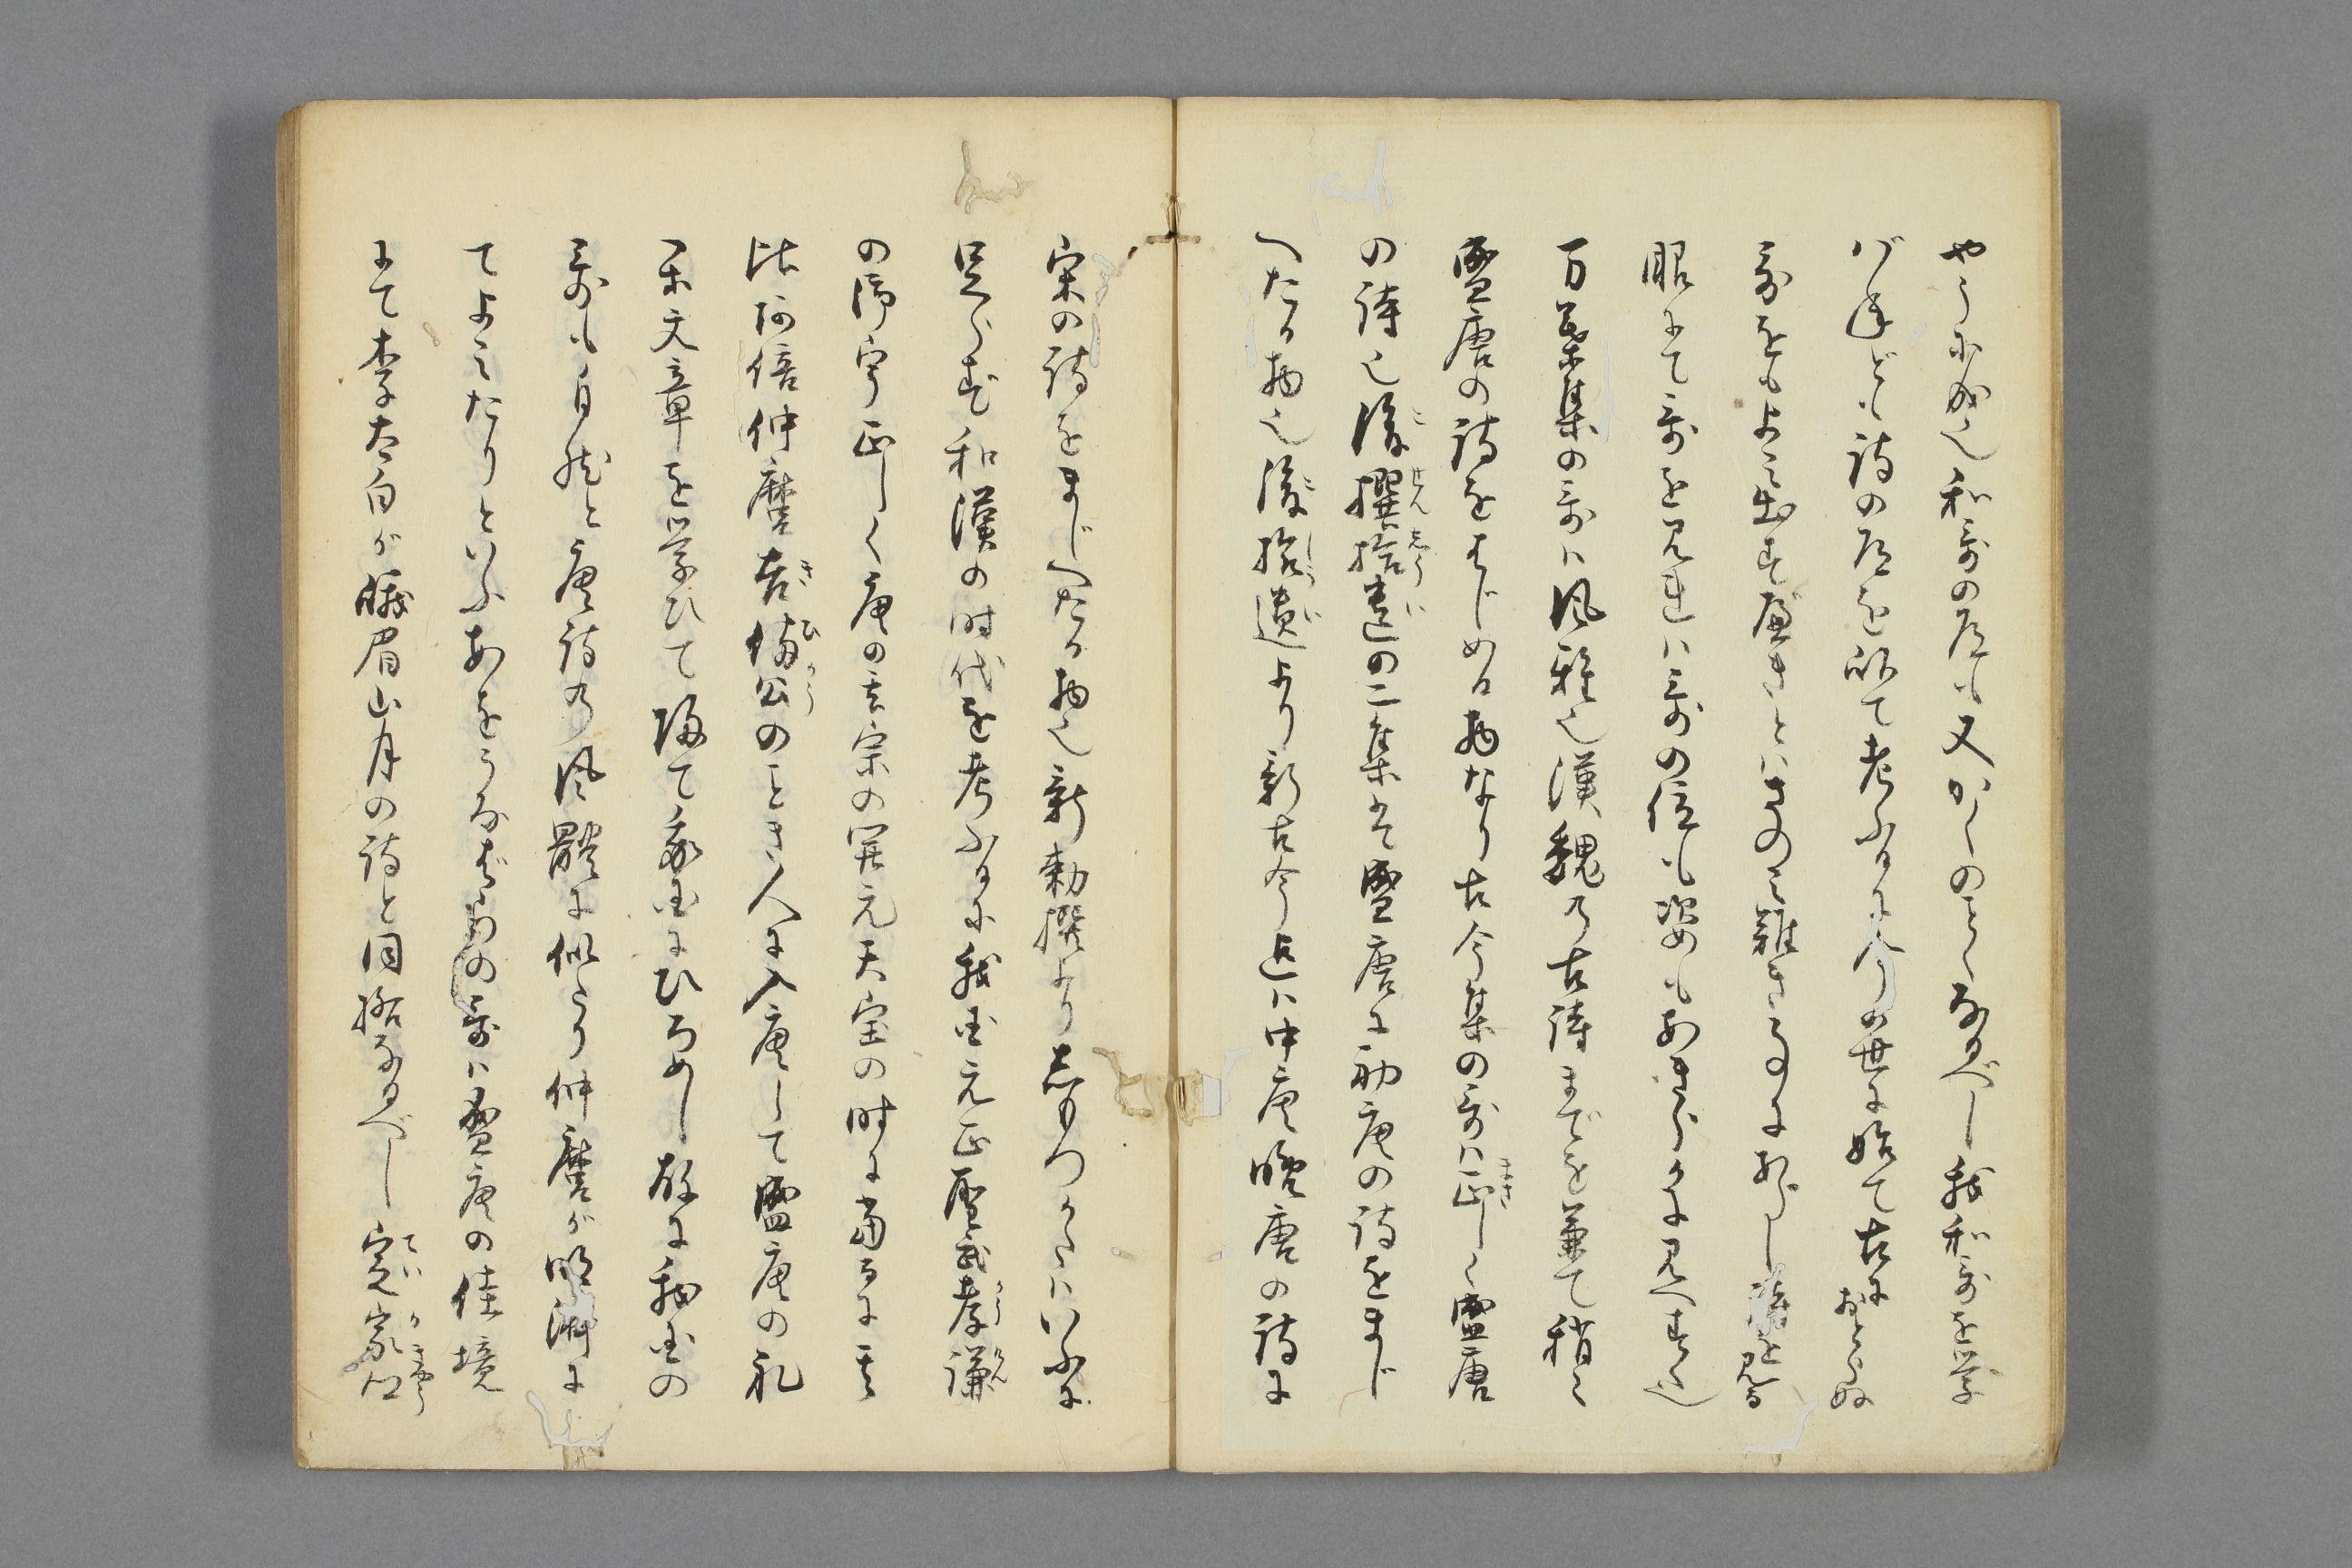 やうに成也和哥の道も又かくのことくなるべし我和哥を学
ばねども詩の道を祢て考ふるに今の世に始て古におとらぬ
哥をもよみ出すべきとはさのみ難き事にあらし詩を見る
眼にて哥を見れは哥の位も姿もあきらかに見へすく也
万葉集の哥は風雅也漢魏の古詩までを兼て稍々
盛唐の詩をはじめる物なり古今集の哥は正しく盛唐
の詩也後撰拾遺の二集は盛唐に初唐の詩をまじ
へたる物也後拾遺より新古今迄は中唐晩唐の詩に
宋の詩をまじへたる物也新勅撰より志もつかたはいふに
足らず和漢の時代を考ふるに我国元正聖武孝謙
の御宇正しく唐の玄宗の開元天宝の時に当るに其
比阿倍仲麿吉備公のことき人に入唐して盛唐の礼
楽文章を学ひて帰て我国にひろめし故に我国の
哥も自然と唐詩の風體に似たり仲麿が明州に
てよみたりといふあをうなばらの哥は盛唐の佳境
にて李太白が峨眉山月の詩と同格なるべし定家卿